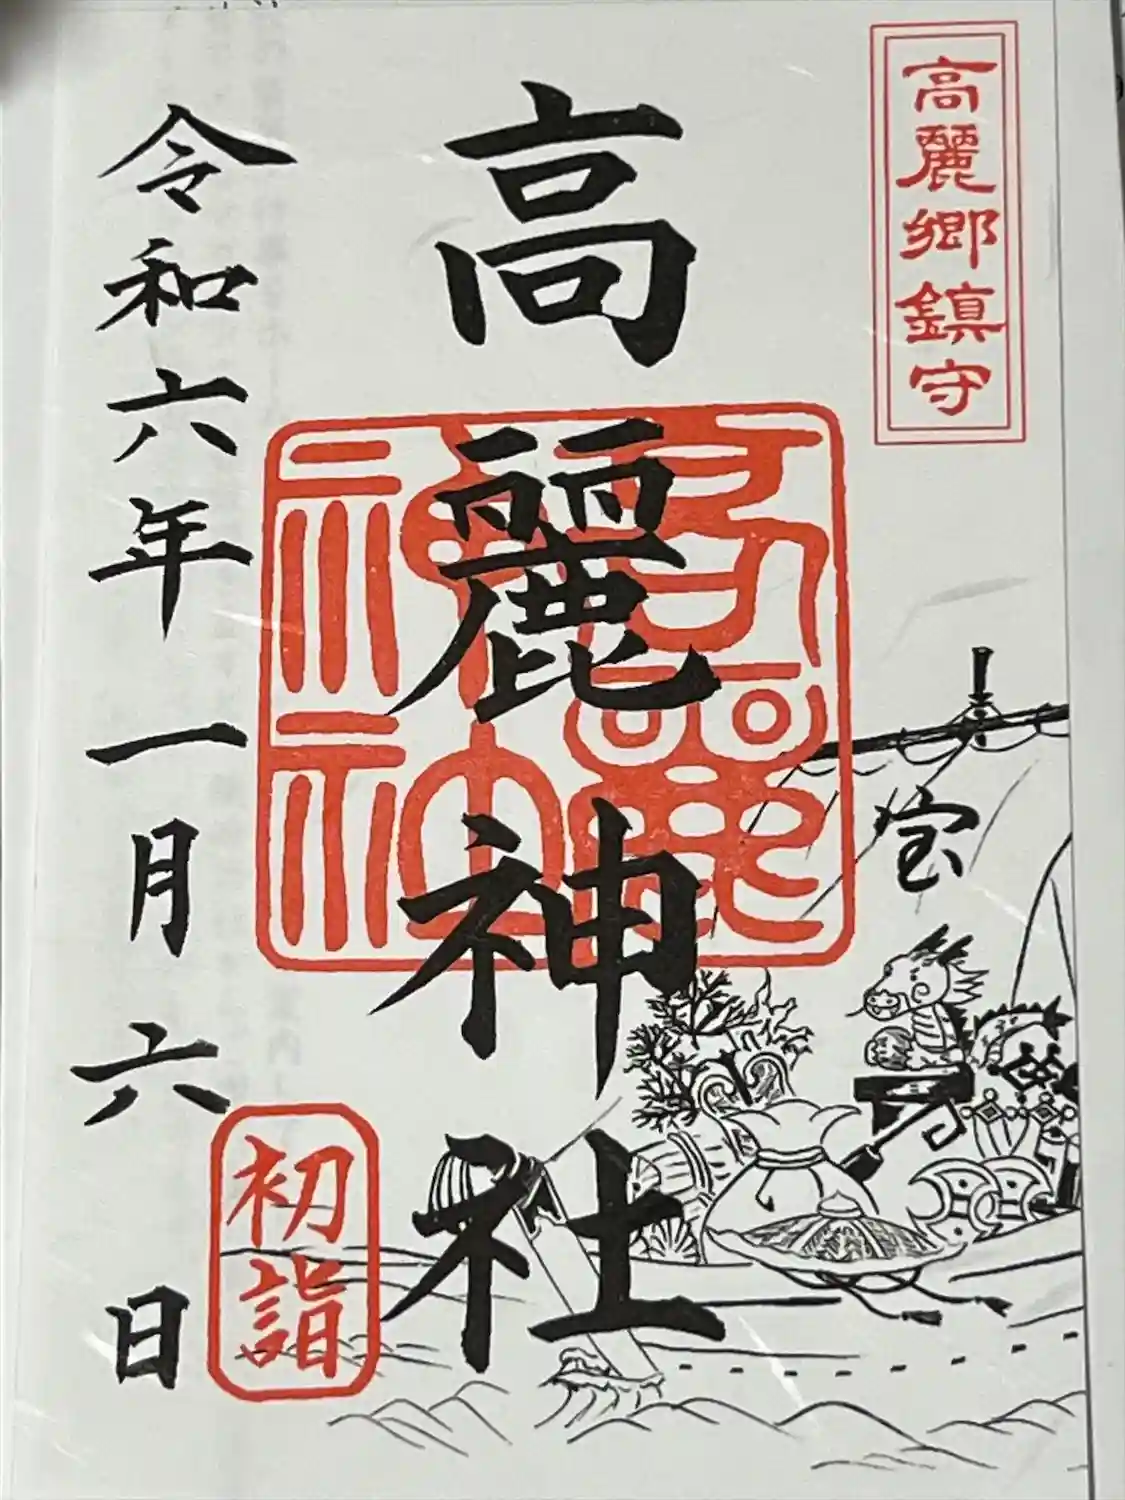 高麗郷鎮守
宝
高麗神社
高麗神社
令和六年一月六日
初詣